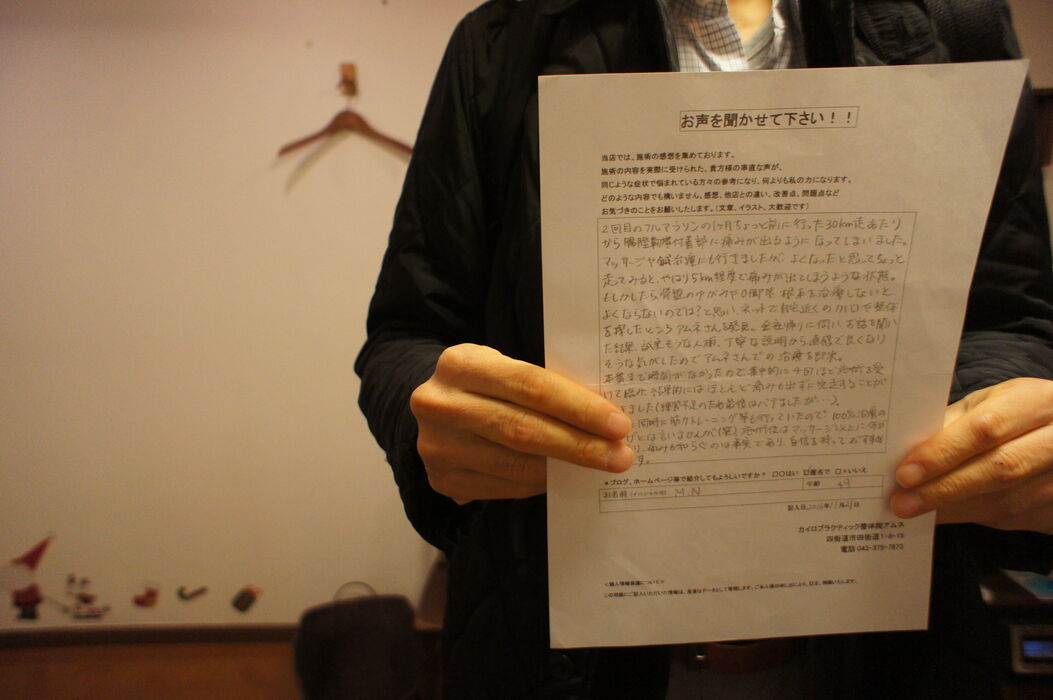 お声を聞かせて下さい！！
当店では、施術の感想を集めております。
施術の内容を実際に受けられた、貴方様の率直な声が、
同じような症状で悩まれている方々の参考になり、何よりも私の力になります。
どのような内容でも構いません。感想、他店との違い、改善点、問題点など
お気づきのことをお願いしたします。（文章、イラスト、大歓迎です）
2回目のフルマラソンの1ヶ月ちょっと前に行った30km走あたり
から腸脛靭帯付着部に痛みが出るようになってしまいました。
マッサージや鍼治療にも行きましたが、よくなったと思ってちょっと
走ってみると、やはり5km程度で痛みが出てしまうような状態。
もしかしたら骨盤のゆがみやO脚等 根本を治療しないと
よくならないのでは？と思い、ネットで自宅近くのカイロや整体
を探したところアムネさんを発見。会社帰りに伺い、お話を聞い
た結果、誠実そうな人柄、丁寧な説明から直感で良くなり
そうな気がしたのでアムネさんでの治療を即決。
本番まで時間がなかったので集中的に4回ほど治療を受
けて臨み、結果的にはほとんど痛みも出ずに完走することが
きました（練習不足のため最後はバテましたが…）。
同時に筋力トレーニング等も行っていたので、100%治療の
とは言いませんが（笑）治療後はマッサージ
り、痛みが和らぐのは事実であり、自信を持っておすすめ
す。
★ブログ、ホームページ等で紹介してもよろしいですか？ □はい ☑匿名で □いいえ
お名前（イニシャル可） M.N 年齢 49
記入日 2016年11月21日
カイロプラクティック整体院アムネ
四街道市四街道1-8-15
電話 043-375-7873
＜個人情報保護について＞
この用紙にご記入いただいた情報は、重要なデータとして管理します。ご本人様の申し出により、訂正、削除いたします。